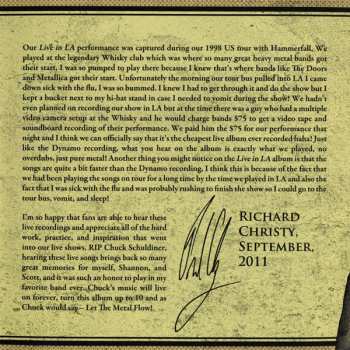 Our Live in LA performance was captured during our 1998 US tour with Hammerfall. We
played at the legendary Whisky club which was where so many great heavy metal bands got
their start, I was so pumped to play there because I knew that's where bands like The Doors
and Metallica got their start. Unfortunately the morning our tour bus pulled into LA I came
down sick with the flu, I was so bummed. I knew I had to get through it and do the show but I
kept a bucket next to my hi-hat stand in case I needed to vomit during the show! We hadn't
even planned on recording our show in LA but at the time there was a guy who had a multiple
video camera setup at the Whisky club and he would charge bands $75 to get a video tape and
soundboard recording of their performance. We paid him the $75 for our performance that
night and I think we can officially say that it's the cheapest live album ever recorded haha! Just
like the Dynamo recording, what you hear on the album is exactly what we played, no
overdubs, just pure metal! Another thing you might notice on the Live in LA album is that the
songs are quite a bit faster than the Dynamo recording, I think this is because of the fact that
we had been playing the songs on tour for a long time by the time we played in LA and also the
fact that I was sick with the flu and was probably rushing to finish the show so I could go to the
tour bus, vomit, and sleep!
I'm so happy that fans are able to hear these
live recordings and appreciate all of the hard
work, practice, and inspiration that went
into our live shows. RIP Chuck Schuldiner,
hearing these live songs brings back so many
great memories for myself, Shannon, and
Scott, and it was such an honor to play in my
favorite band ever. Chuck's music will live
on forever, turn this album up to 10 and as
Chuck would say– Let The Metal Flow!
Richard
Christy,
September,
2011